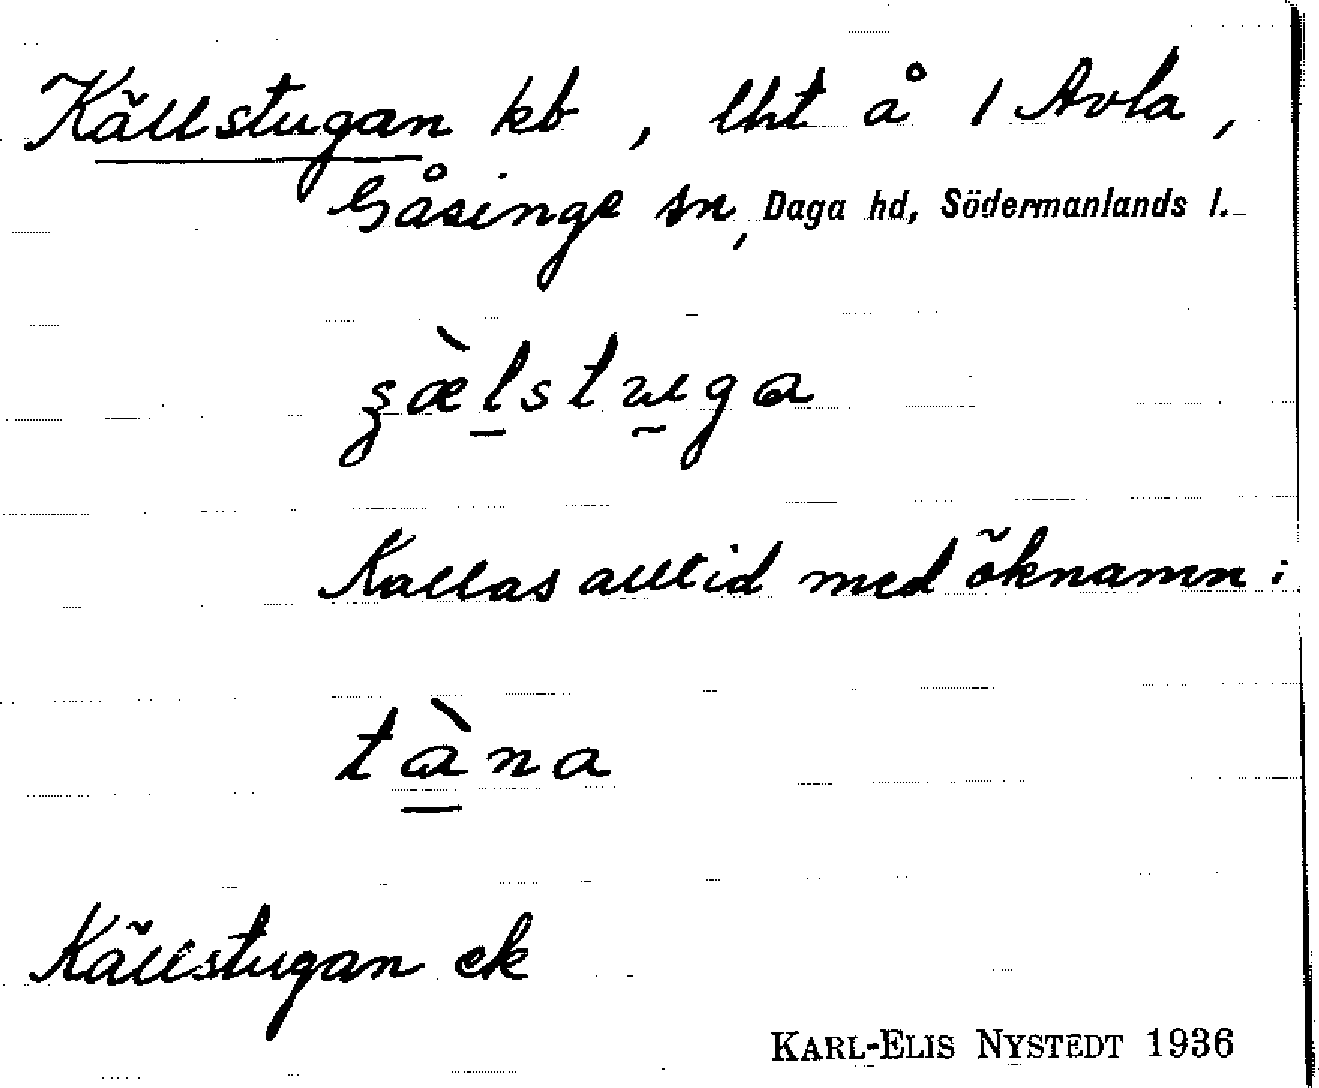 Källstugan kb, lht å 1 Avla,
Gåsinge sn, Daga hd, Södermanlands l.
Kallas alltid med öknamn:
tàna
Källstugan ek
KARL-ELIS NYSTEDT 1936